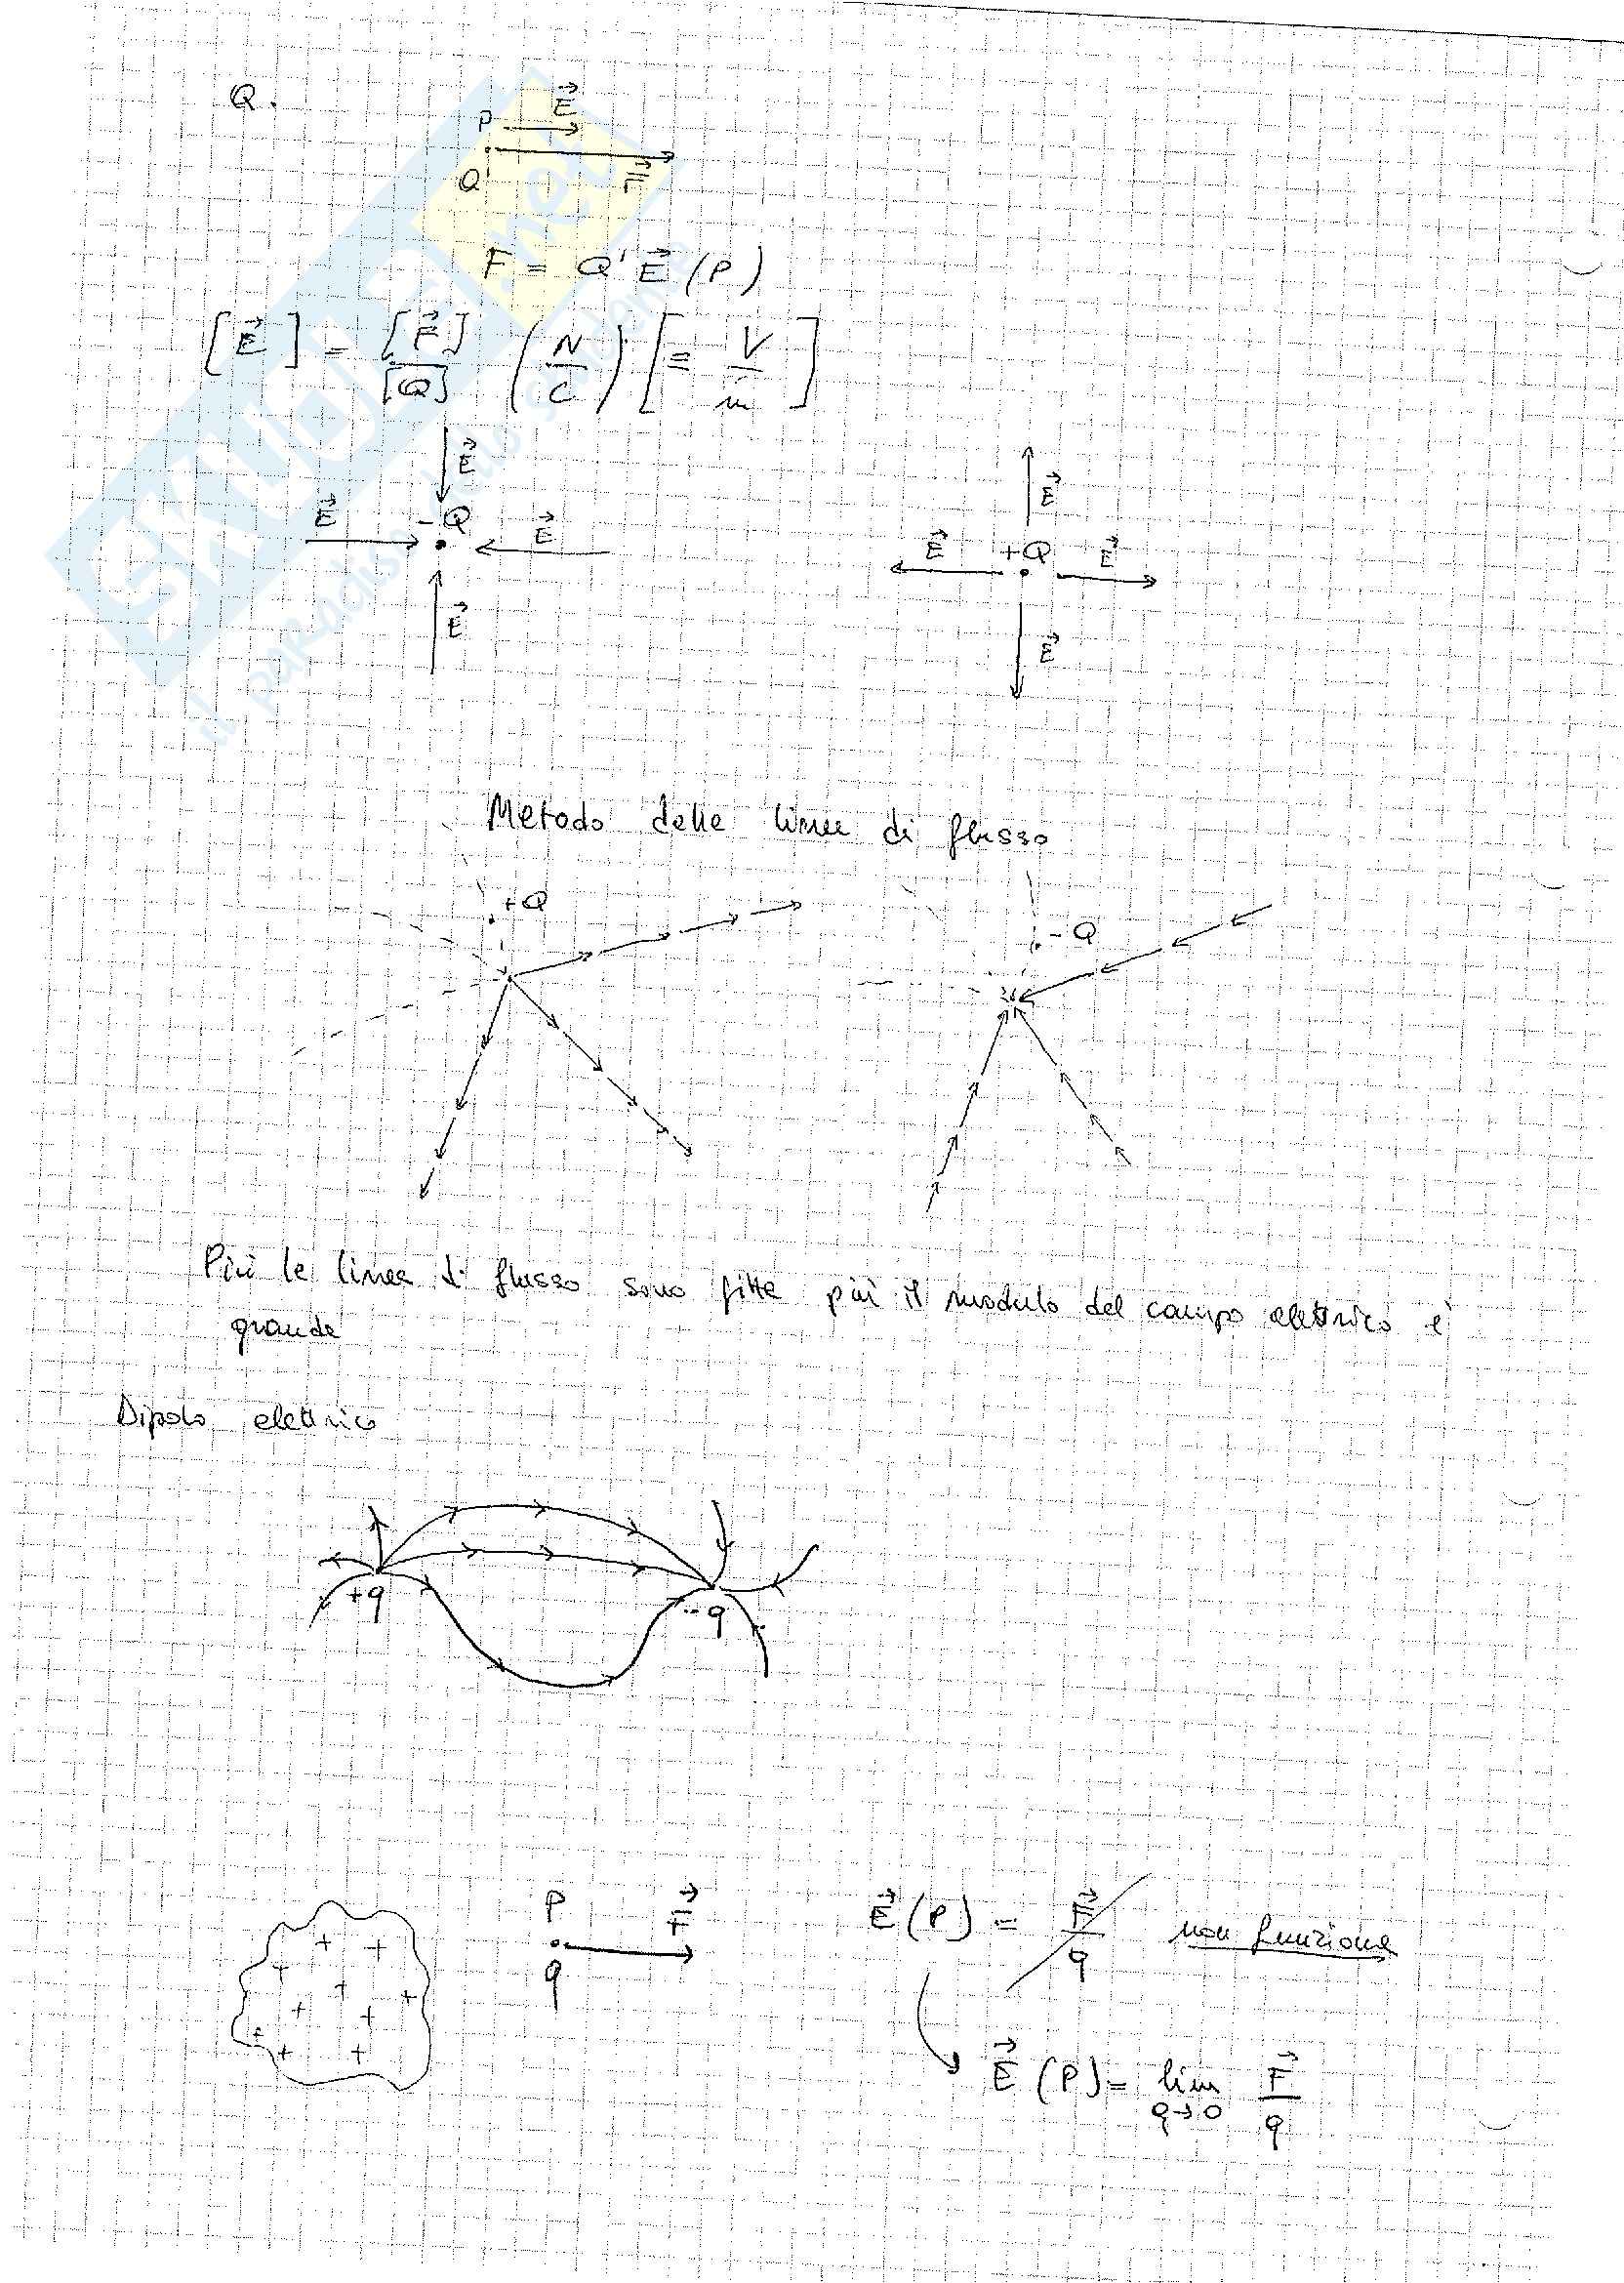 Q.
P E⃗
Q' F⃗
F = Q' E⃗ (P)
[E⃗] = [F⃗]/[Q] (N/C) [= V/m]
E⃗
E⃗ -Q E⃗
E⃗
E⃗
E⃗ +Q E⃗
E⃗
Metodo delle linee di flusso
+Q
-Q
Più le linee di flusso sono fitte più il modulo del campo elettrico è
grande
Dipolo elettrico
+q
-q
+ + + + + + + + + +
P F⃗
q
E⃗(P) = F⃗/q non funziona
E⃗ (P) = lim q→0 F⃗/q